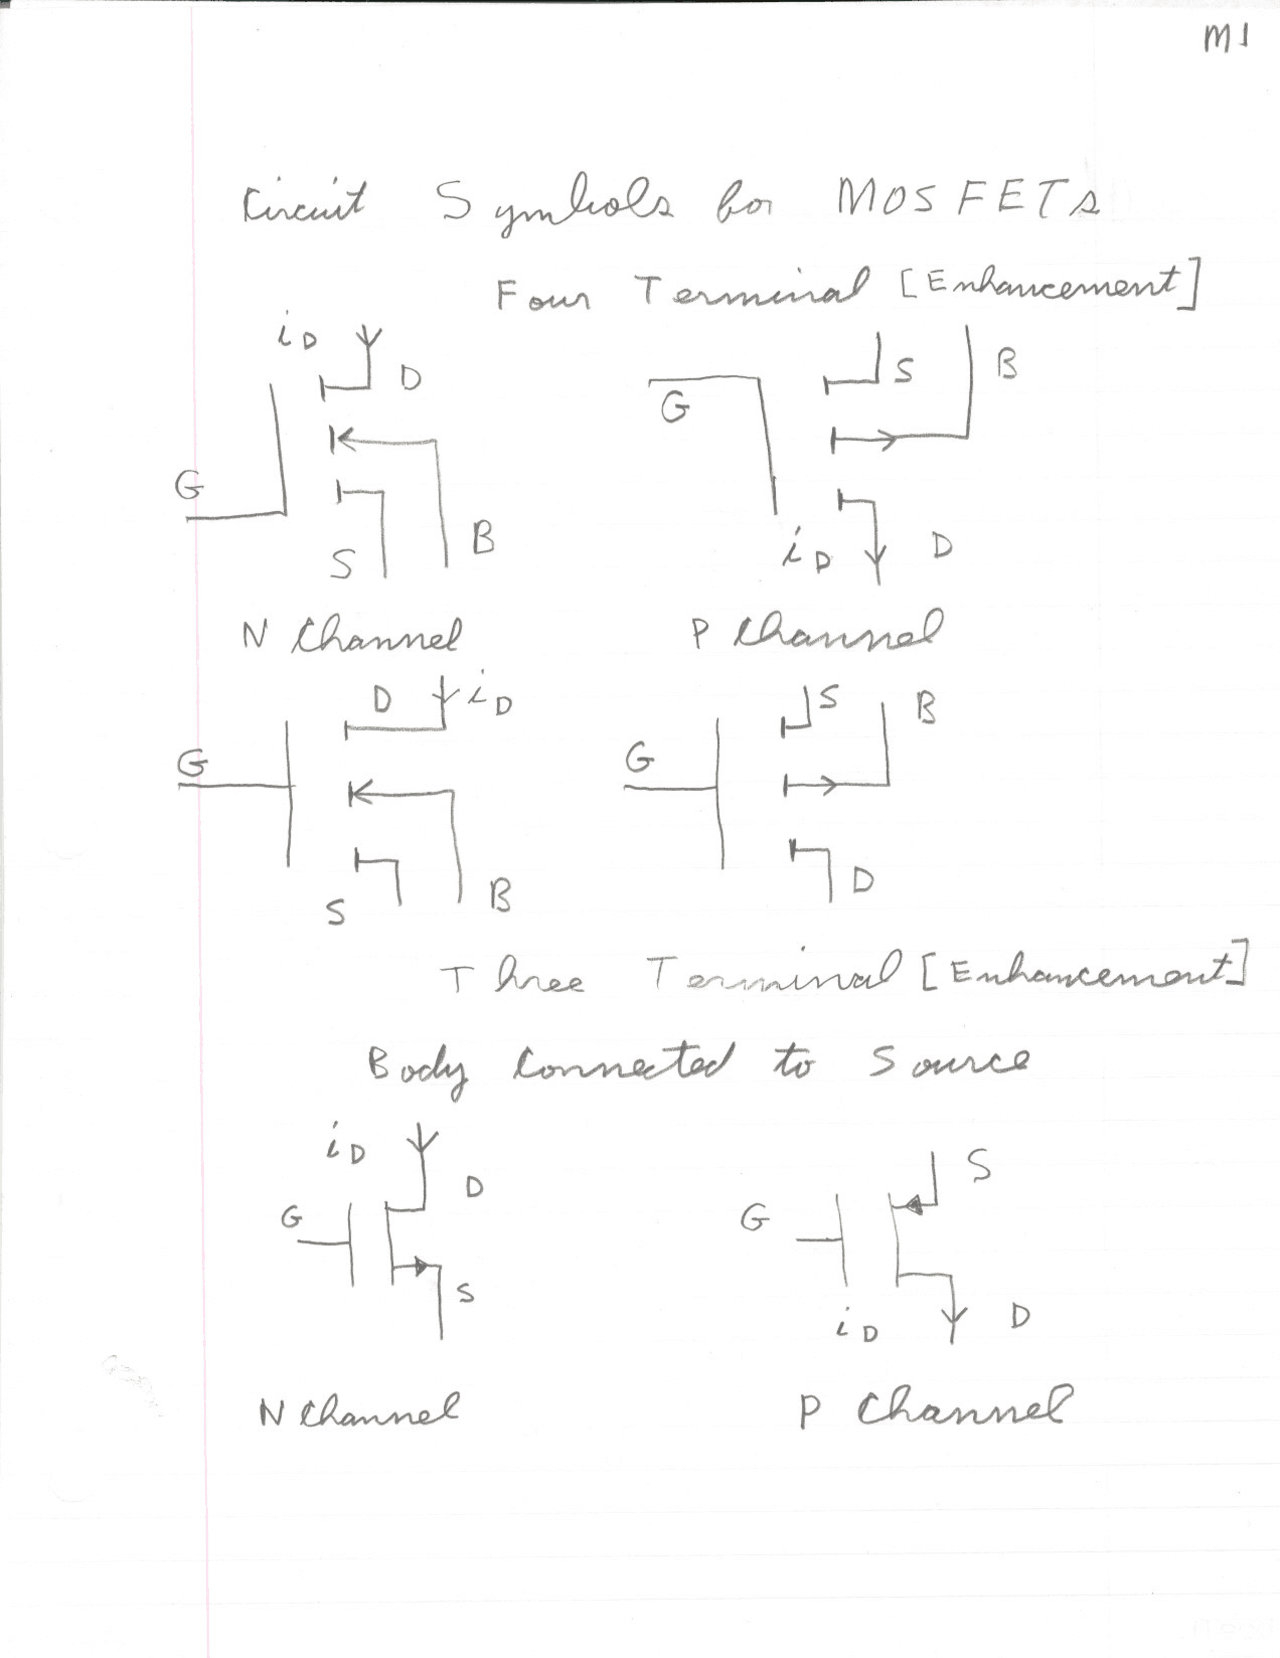 M1
Circuit Symbols for MOSFETs
Four Terminal [Enhancement]
iD D S B
G
G
S B iD D
N Channel P Channel
D iD S B
G G
S B D
Three Terminal [Enhancement]
Body Connected to Source
iD D S
G G
S iD D
N Channel P Channel